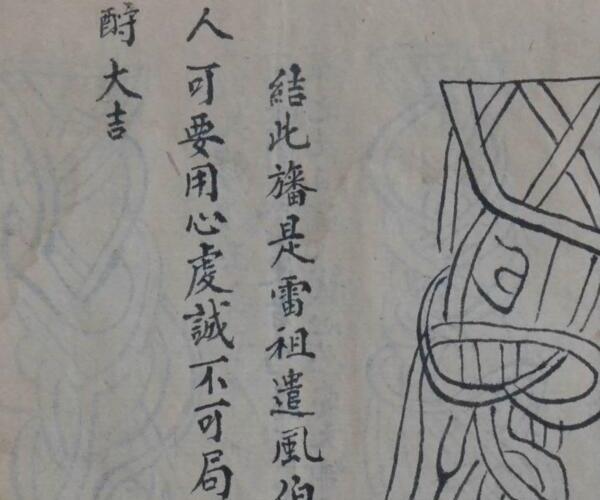 結此旛是雷祖遣風伯
人可要用心虔誠不可局
酧大吉